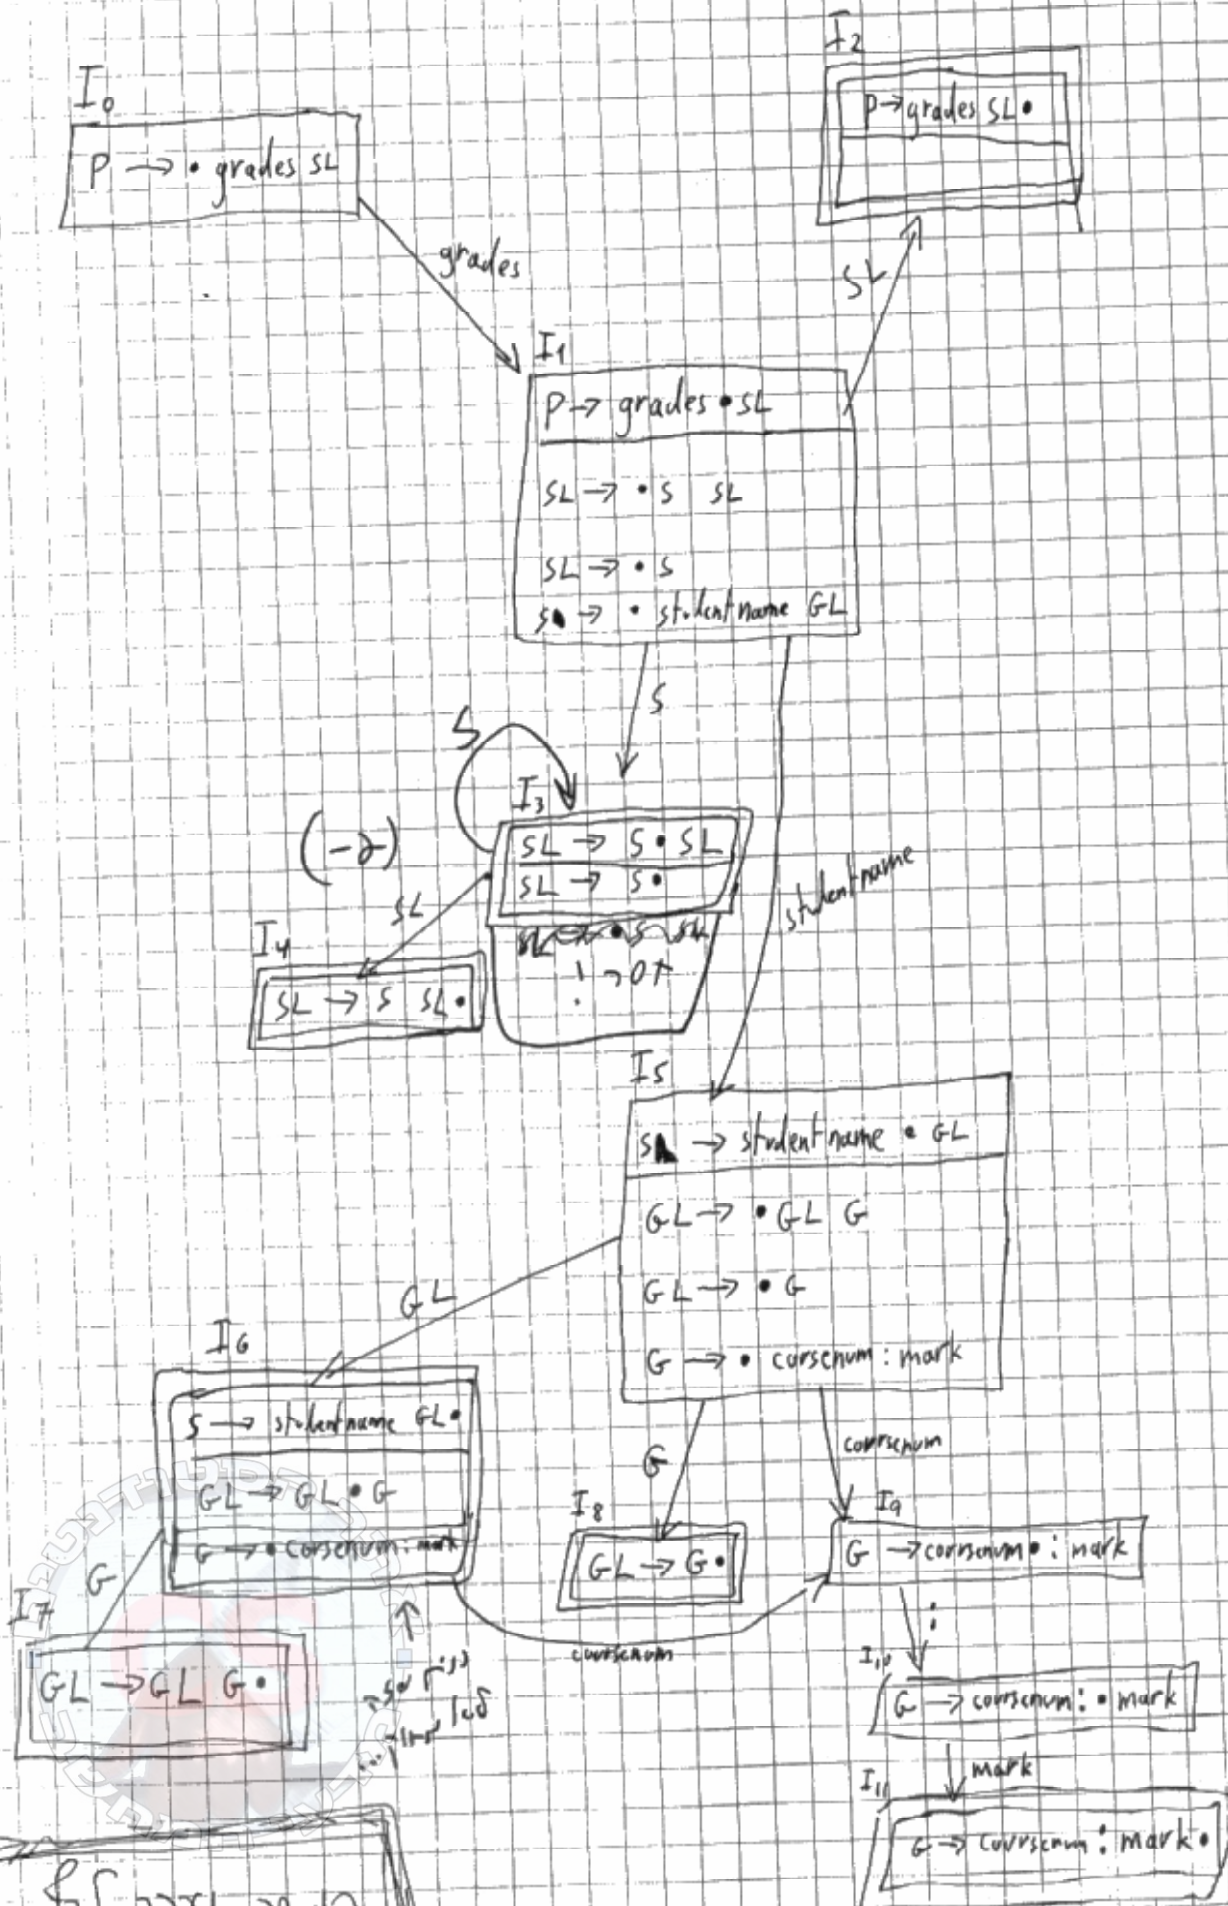 I0
P → • grades SL
grades
I2
P → grades SL •
SL
I1
P → grades • SL
SL → • S SL
SL → • S
S → • studentname GL
S
studentname
S
I3
SL → S • SL
SL → S •
(-2)
SL
I4
SL → S SL •
I5
S → studentname • GL
GL → • GL G
GL → • G
G → • corsenum : mark
GL
I6
S → studentname GL •
GL → GL • G
G → • corsenum : mark
G
I7
GL → GL G •
G
I8
GL → G •
coursenum
coursenum
I9
G → coursenum • : mark
:
I10
G → coursenum : • mark
mark
I11
G → coursenum : mark •